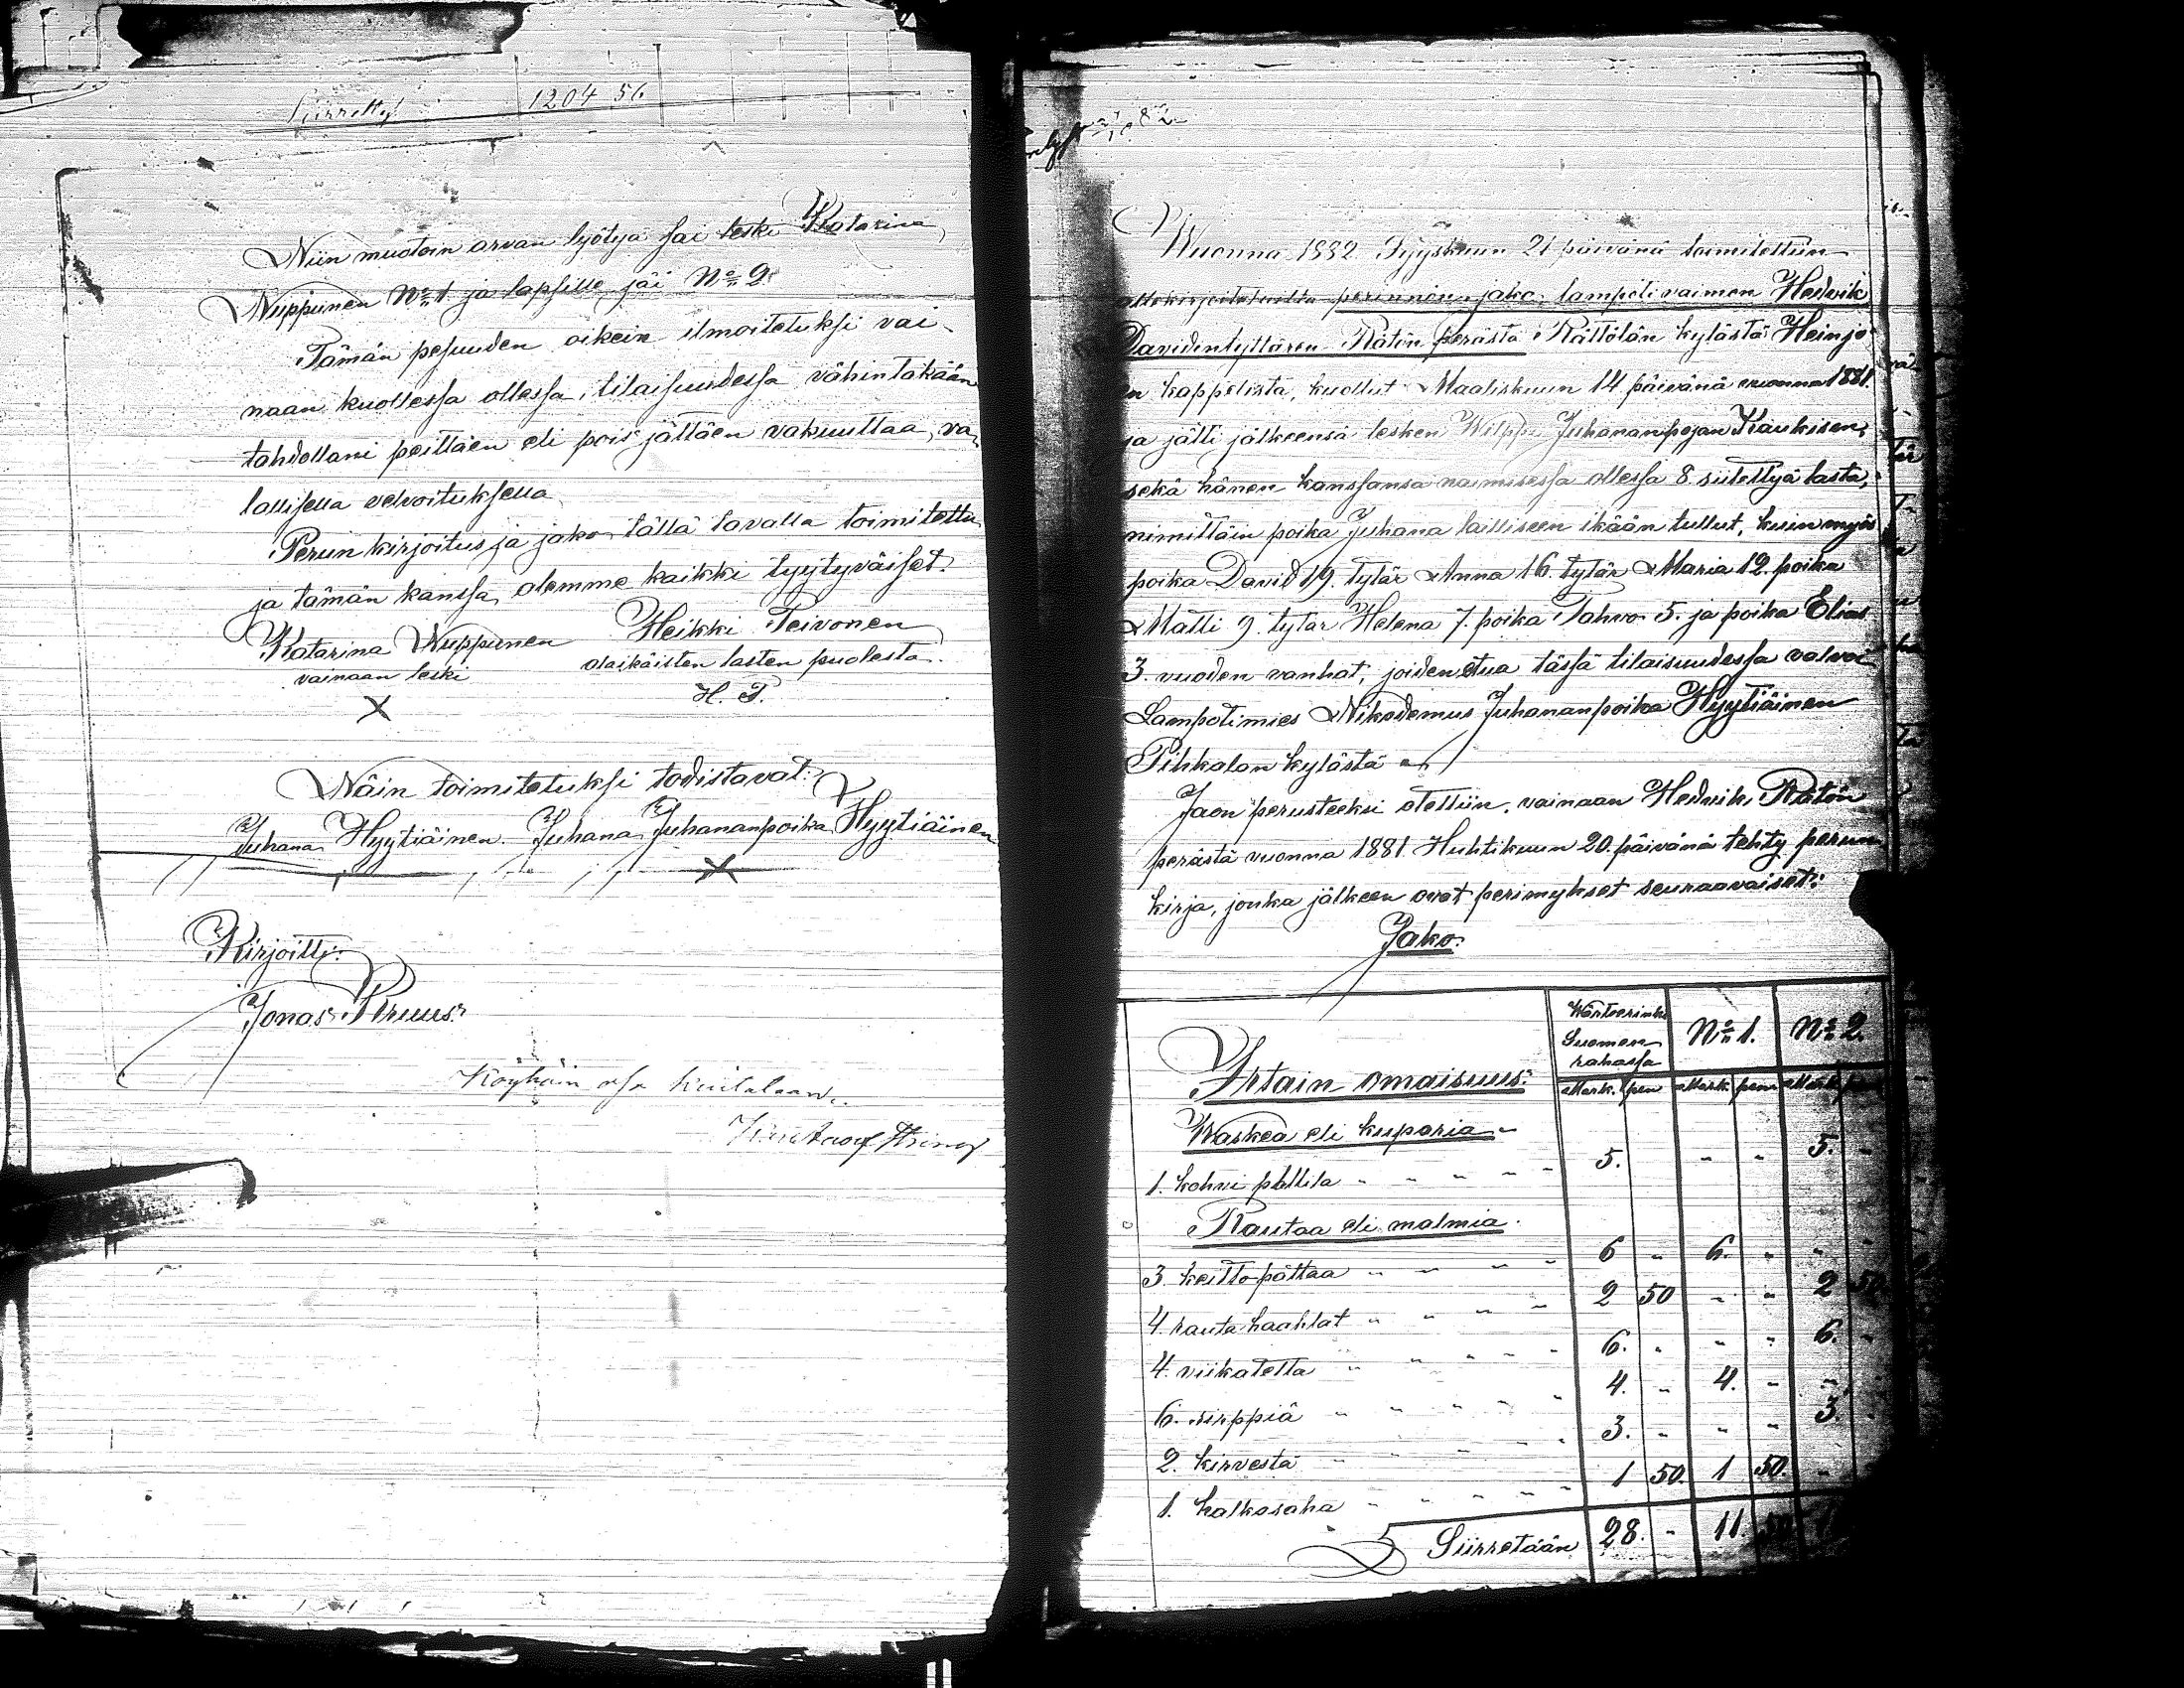 Siirretty 1204 56
Niin muotoin arvan lyötyä sai leski Katarina
Nuppunen No 1 ja lapsille jäi No 2.
Tämän pesuuden oikein ilmoitetuksi vai-
naan kuollessa ollessa, tilaisuudessa vähintäkään
tahdollani peittäen eli pois jättäen vakuuttaa, va-
lallisella velvoituksella
Perun kirjoitus ja jako tällä tavalla toimitettu
ja tämän kanssa olemme kaikki tyytyväiset.
Katarina Nuppunen Heikki Teivonen
vainaan leski alaikäisten lasten puolesta.
X H. T.
Näin toimitetuksi todistavat:
Juhana Hyytiäinen. Juhana Juhananpoika Hyytiäinen
X
Kirjoitti:
Jonas Pruus.
Köyhäin osa
1882
Wuonna 1882 Syyskuun 21 päivänä toimitettiin
allekirjoitetuilta perinnön jako lampoti vaimon Hedvik
Davidintyttären Rätön perästä Rättölän kylästä Heinjo
en kappelista, kuollut Maaliskuun 14 päivänä vuonna 1881.
ja jätti jälkeensä lesken Wilppu Juhananpojan Kaukisen,
sekä hänen kanssansa naimisessa ollessa 8 siitettyä lasta,
nimittäin poika Juhana lailliseen ikään tullut, kuin myös
poika David 19. tytär Anna 16. tytär Maria 12. poika
Matti 9. tytär Helena 7. poika Tahvo 5. ja poika Elias
3 vuoden vanhat, joiden etua tässä tilaisuudessa valvoi
Lampotimies Nikodemus Juhananpoika Hyytiäinen
Pihkalan kylästä
Jaon perusteeksi otettiin, vainaan Hedvik Rätön
perästä vuonna 1881 Huhtikuun 20. päivänä tehty perun
kirja, jonka jälkeen ovat perimykset seuraavaiset:
Jako.
Irtain omaisuus: Suomen rahassa No 1. No 2.
Mark. pen Mark. pen Mark.
Waskea eli kuparia
1. kohvi pottila 5. " " 5. "
Rautaa eli malmia.
3. keitto pättaa 6 " 6. " " "
4. rauta haahlat 2 50 " " 2 50
4. viikatetta 6. " " " 6. "
6. sirppiä 4. " 4. " " "
2. kirvestä 3. " " " 3.
1. halkosaha 1 50. 1 50. "
Siirretään 28. " 11.